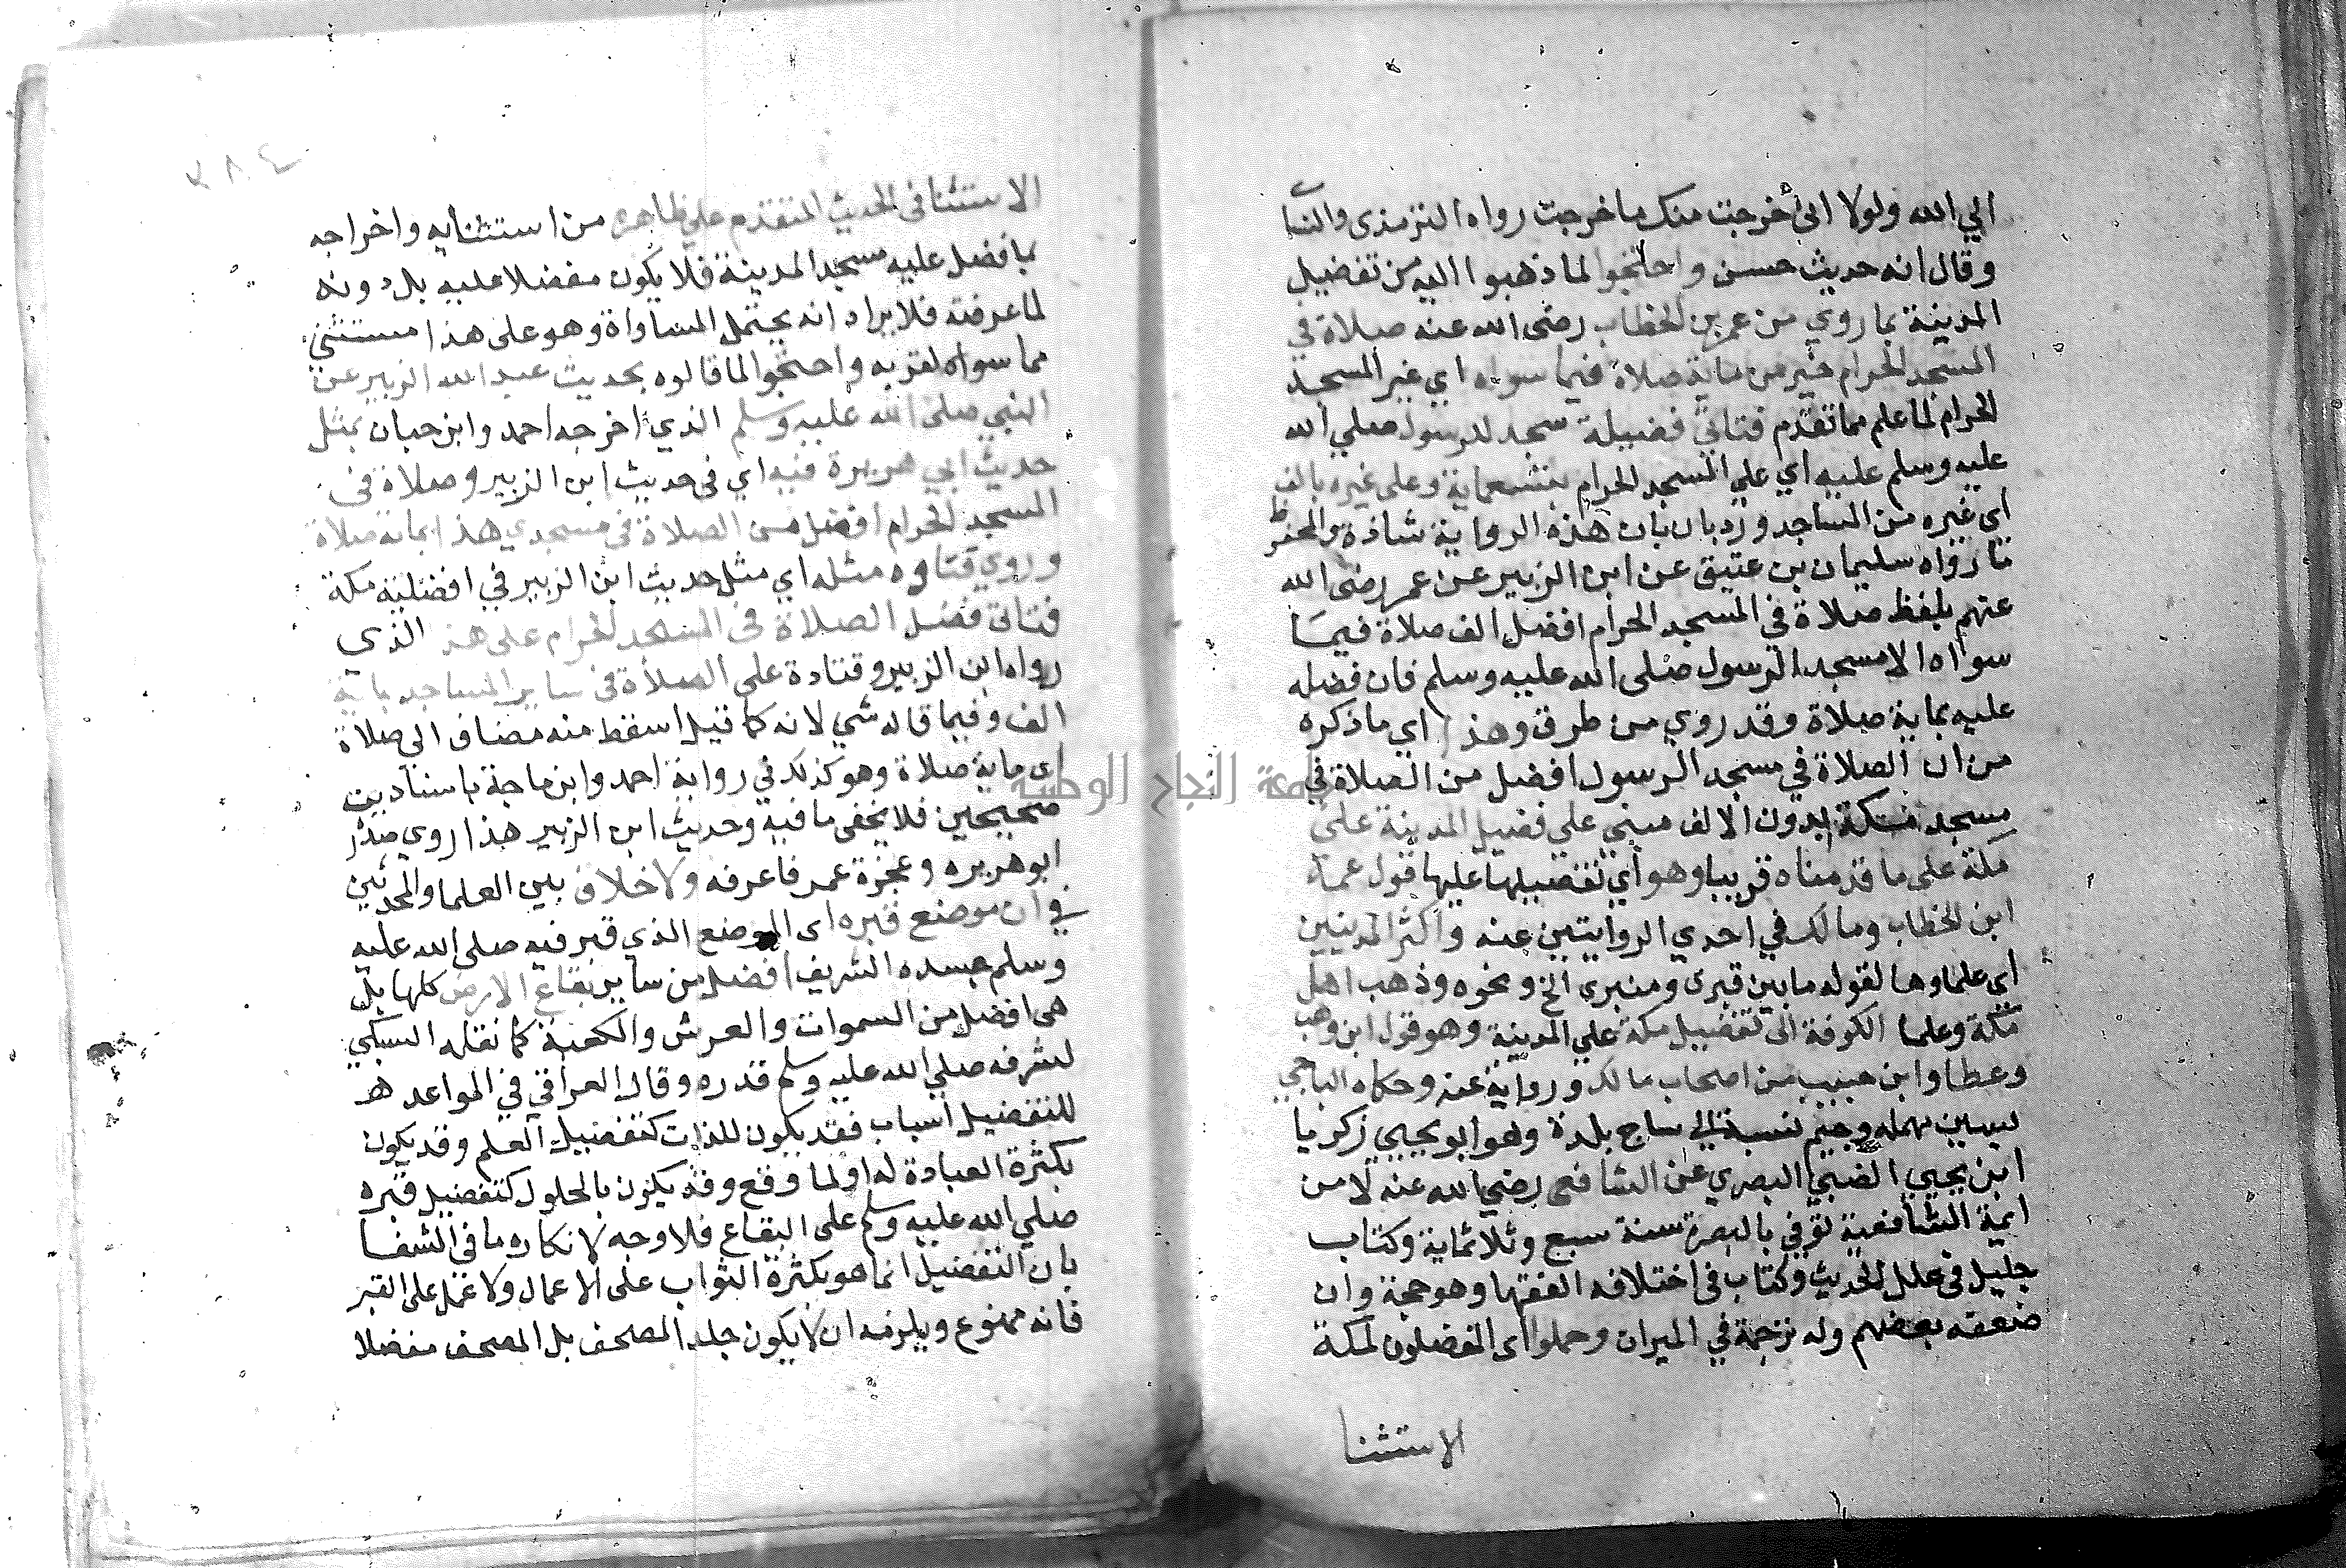 الي الله ولولا اني أخرجت منك ما خرجت رواه الترمذى والنسا
وقال انه حديث حسن واحتجوا لما ذهبوا اليه من تفضيل
المدينة بما روي عن عمر بن الخطاب رضى الله عنه صلاة في
المسجد الحرام خير من ماية صلاة فيما سواه اي غير المسجد
الحرام لما علم مما تقدم فتاتي فضيلة سجد لرسول صلي الله
عليه وسلم عليه اي علي المسجد الحرام بتسعماية وعلى غيره بالف
اي غيره من المساجد ورد بان بان هذه الرواية شاذة والمحفوظ
ما رواه سليمان بن عتيق عن ابن الزبير عن عمر رضى الله
عنهم بلفظ صلاة في المسجد الحرام افضل الف صلاة فيما
سواه الا مسجد الرسول صلى الله عليه وسلم فان فضله
عليه بماية صلاة وقد روي من طرق وهذا اي ما ذكره
من ان الصلاة في مسجد الرسول افضل من الصلاة في
مسجد مكة بدون الالف مبني علي فضيل المدينة على
مكة على ما قدمناه قريبا وهو اي تفضيلها عليها قول عمر
ابن الخطاب ومالك في احدي الروايتين عنه واكثر المدينيين
اي علماوها لقوله ما بين قبرى ومنبرى الخ ونحوه وذهب اهل
مكة وعلما الكوفة الى تفضيل مكة علي المدينة وهو قول ابن وهب
وعطا وابن حبيب من اصحاب مالك ورواية عنه وحكاه الباجي
بسين مهمله وجيم نسبة الي ساج بلدة وهو ابو يحيي زكريا
ابن يحيي الضبي البصري عن الشافعى رضي الله عنه لا من
ايمة الشافعية توفي بالبصرة سنة سبع وثلاثماية وكتاب
جليل فى علل الحديث وكتاب فى اختلافه الفقها وهو حجة وان
ضعفه بعضهم وله ترجمة في الميزان وحملوا اى المفضلون لمكة
الاستثنا
٢٨٤
الاستثنا فى الحديث المتقدم علي ظاهره من استثنايه واخراجه
بما فضل عليه مسجد المدينة فلا يكون مفضلا عليه بل دونه
لما عرفته فلا يراد انه يحتمل المساواة وهو على هذا مستثني
مما سواه لقربه واحتجوا لما قالوه بحديث عبد الله الزبير عن
النبي صلى الله عليه وسلم الذي اخرجه احمد وابن حبان بمثل
حديث ابي هريرة فيه اي فى حديث ابن الزبير وصلاة فى
المسجد الحرام افضل من الصلاة فى مسجدي هذا بماية صلاة
وروي قتاوه مثله اي مثل حديث ابن الزبير في افضلية مكة
فتاتى فضل الصلاة فى المسجد الحرام على هذ الذي
رواه ابن الزبير وقتادة علي الصلاة فى ساير المساجد بماية
الف وفيما قاله شي لانه كما قيل اسقط منه مضاف الي صلاة
اى ماية صلاة وهو كذلك في رواية احمد وابن ماجة باسنادين
صحيحين فلا يخفى ما فيه وحديث ابن الزبير هذا روي صدر
ابو هريره وعجزة عمر فاعرفه ولا خلاف بين العلما والمحدثين
في ان موضع قبره اى الموضع الذي قبر فيه صلى الله عليه
وسلم جسده الشريف افضل من ساير بقاع الارض كلها بل
هى افضل من السموات والعرش والكعبة كما نقله السبكي
لشرفه صلي الله عليه وسلم قدره وقال العراقي في المواعد هـ
للتفضيل اسباب فقد يكون للذات كتفضيل العلم وقد يكون
بكثرة العبادة له اولما وقع وقد يكون بالحلول كتفضيل قبره
صلي الله عليه وسلم على البقاع فلا وجه لانكاره ما فى الشفا
بان التفضيل انما هو بكثرة الثواب على الاعمال ولا عمل على القبر
فانه ممنوع ويلزمه ان لا يكون جلد المصحف بل المصحف مفضلا
جامعة النجاح الوطنية